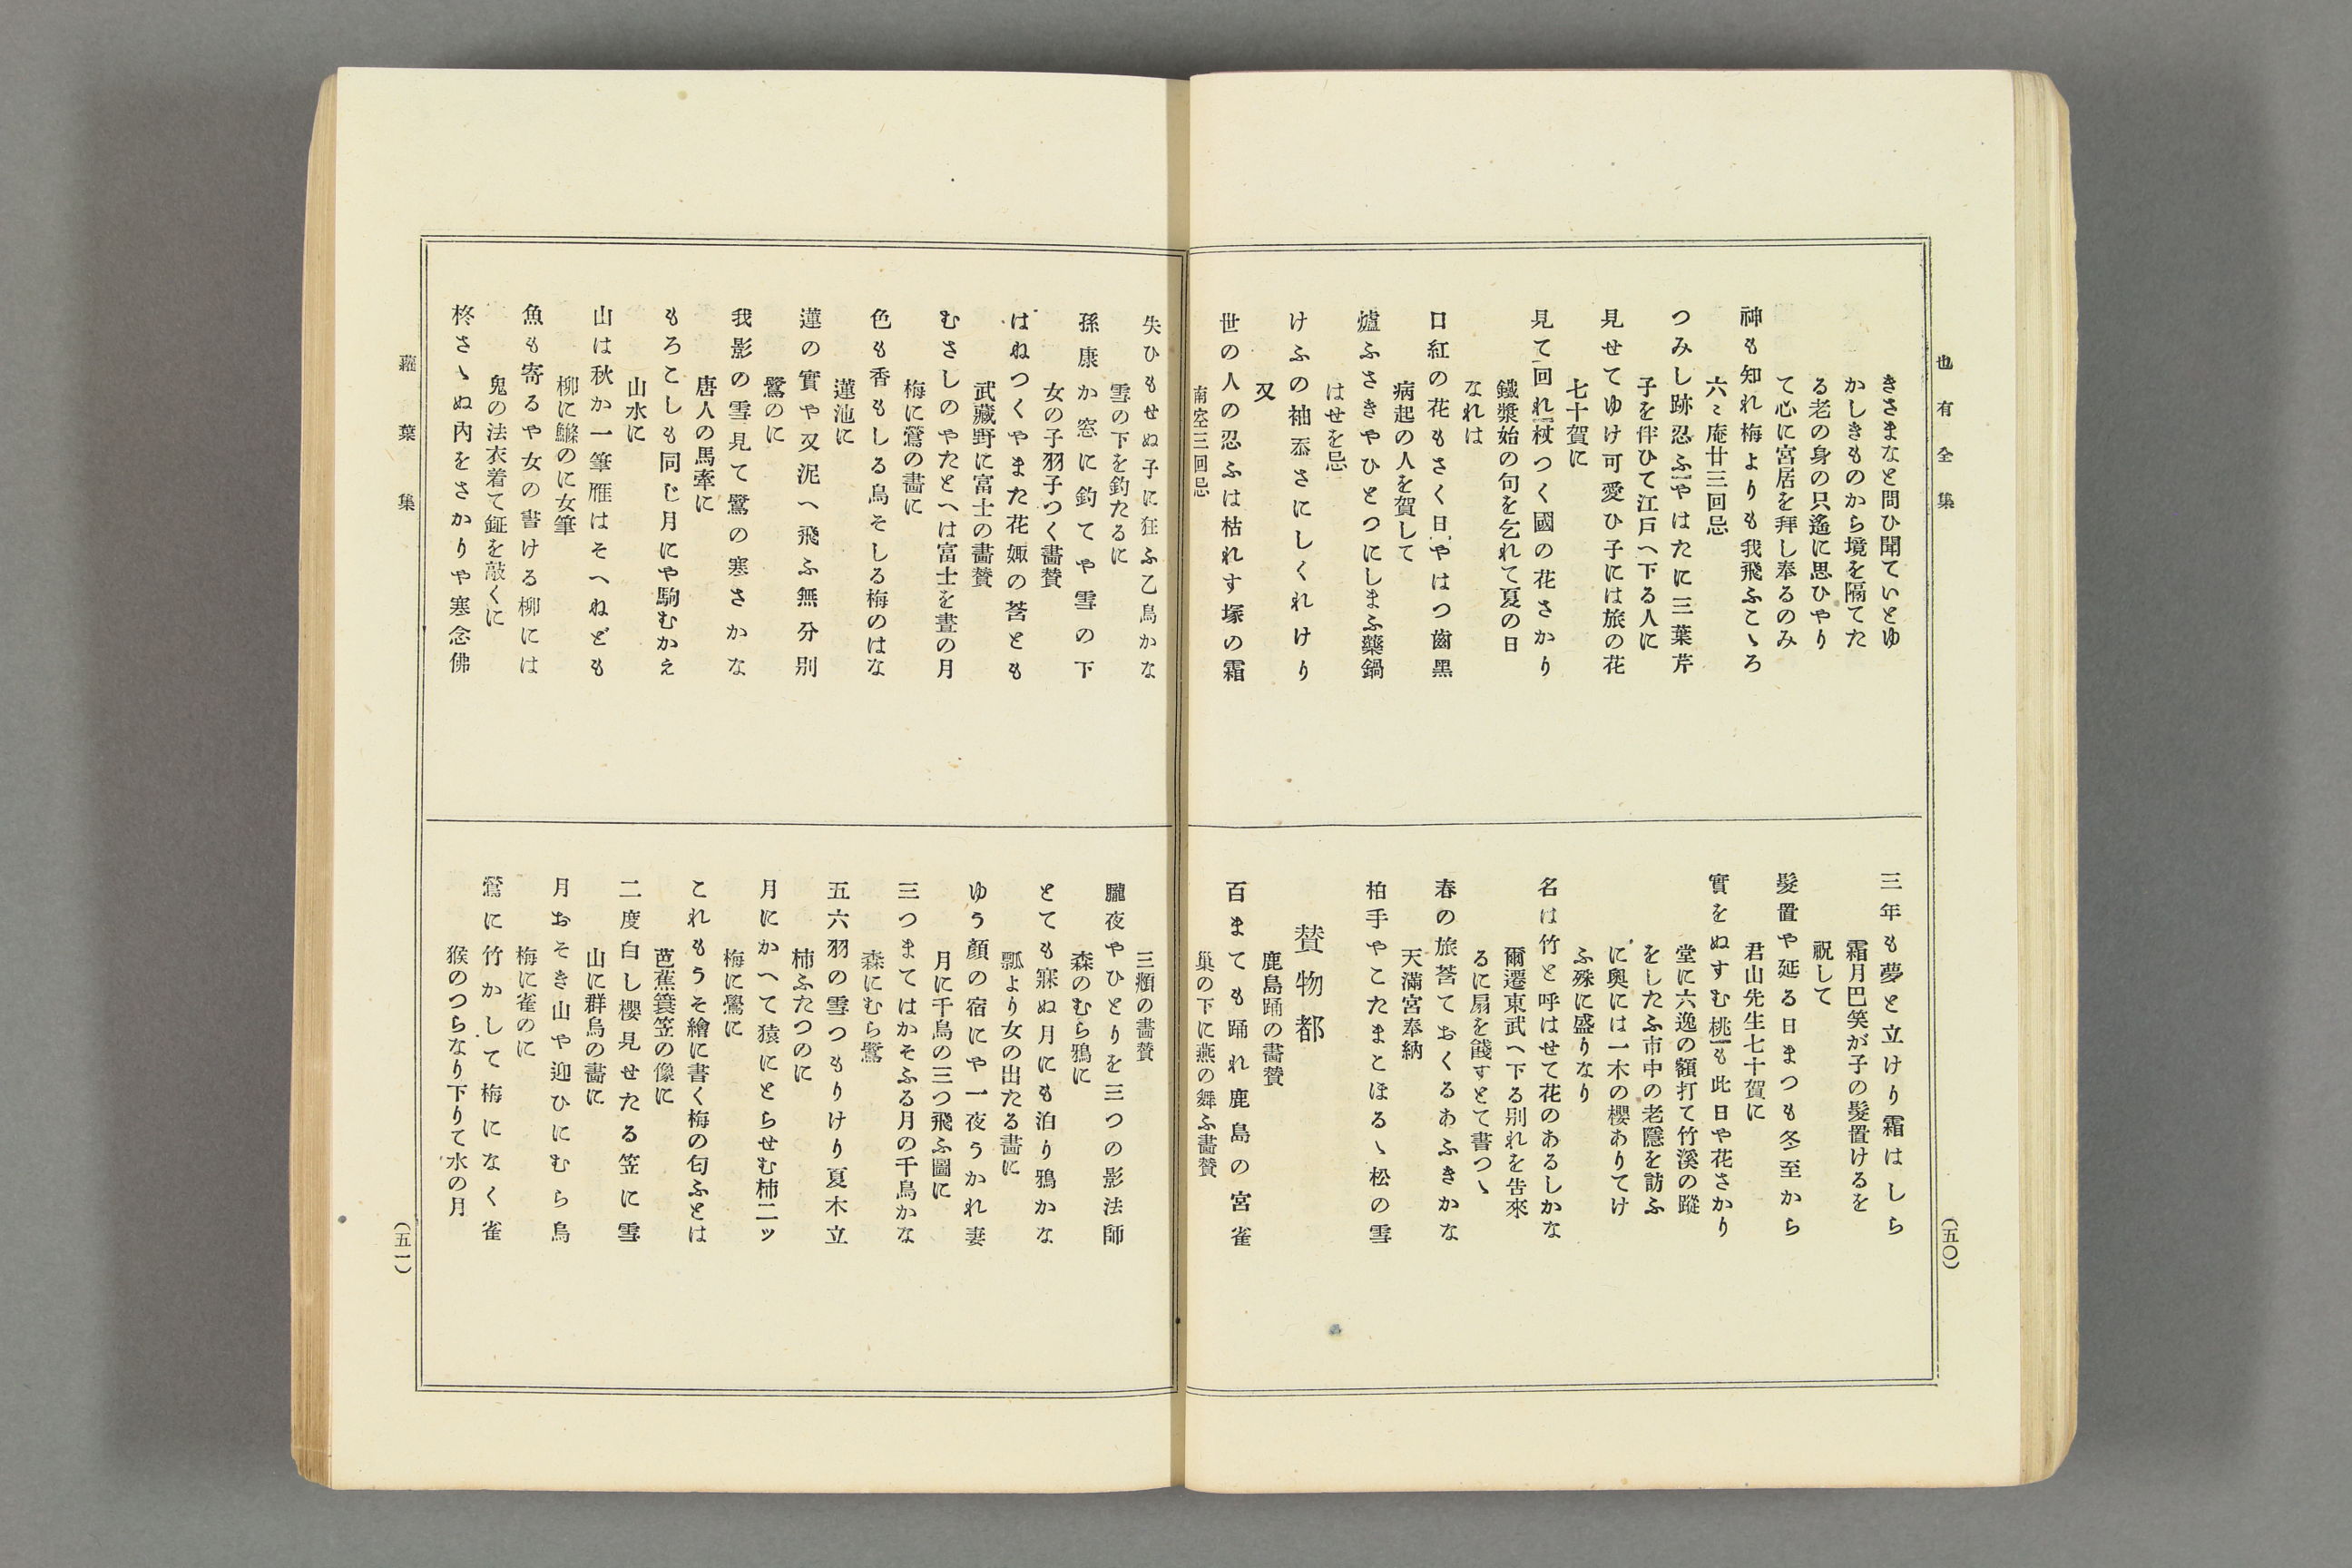 也有全集
きさまなと問ひ聞ていとゆ
かしきものから境を隔てた
る老の身の只遙に思ひやり
て心に宮居を拜し奉るのみ
神も知れ梅よりも我飛ふこゝろ
六々庵廿三回忌
つみし跡忍ふやはたに三葉芹
子を伴ひて江戸へ下る人に
見せてゆけ可愛ひ子には旅の花
七十賀に
見て回れ杖つく國の花さかり
鐵漿始の句を乞れて夏の日
なれは
口紅の花もさく日やはつ齒黑
病起の人を賀して
爐ふさきやひとつにしまふ藥鍋
はせを忌
けふの袖忝さにしくれけり
又
世の人の忍ふは枯れす塚の霜
南空三回忌
三年も夢と立けり霜はしら
霜月巴笑が子の髮置けるを
祝して
髮置や延る日まつも冬至から
君山先生七十賀に
實をぬすむ桃も此日や花さかり
堂に六逸の額打て竹溪の蹤
をしたふ市中の老隱を訪ふ
に奧には一木の櫻ありてけ
ふ殊に盛りなり
名は竹と呼はせて花のあるしかな
爾遷東武へ下る別れを告來
るに扇を餞すとて書つゝ
春の旅荅ておくるあふきかな
天滿宮奉納
柏手やこたまとほるゝ松の雪
賛物都
鹿島踊の畵賛
百まても踊れ鹿島の宮雀
巢の下に燕の舞ふ畵賛
(五〇)
失ひもせぬ子に狂ふ乙鳥かな
雪の下を釣たるに
孫康か窓に釣てや雪の下
女の子羽子つく畵賛
はねつくやまた花娵の荅とも
武藏野に富士の畵賛
むさしのやたとへは富士を晝の月
梅に鶯の畵に
色も香もしる鳥そしる梅のはな
蓮池に
蓮の實や又泥へ飛ふ無分別
鷺のに
我影の雪見て鷺の寒さかな
唐人の馬牽に
もろこしも同じ月にや駒むかえ
山水に
山は秋か一筆雁はそへねども
柳に鰷のに女筆
魚も寄るや女の書ける柳には
鬼の法衣着て鉦を敲くに
柊さゝぬ内をさかりや寒念佛
三頽の畵賛
朧夜やひとりを三つの影法師
森のむら鴉に
とても寐ぬ月にも泊り鴉かな
瓢より女の出たる畵に
ゆう顏の宿にや一夜うかれ妻
月に千鳥の三つ飛ふ圖に
三つまてはかそふる月の千鳥かな
森にむら鷺
五六羽の雪つもりけり夏木立
柿ふたつのに
月にかへて猿にとらせむ柿二ッ
梅に鶯に
これもうそ繪に書く梅の匂ふとは
芭蕉簔笠の像に
二度白し櫻見せたる笠に雪
山に群烏の畵に
月おそき山や迎ひにむら烏
梅に雀のに
鶯に竹かして梅になく雀
猴のつらなり下りて水の月
蘿葉集
(五一)